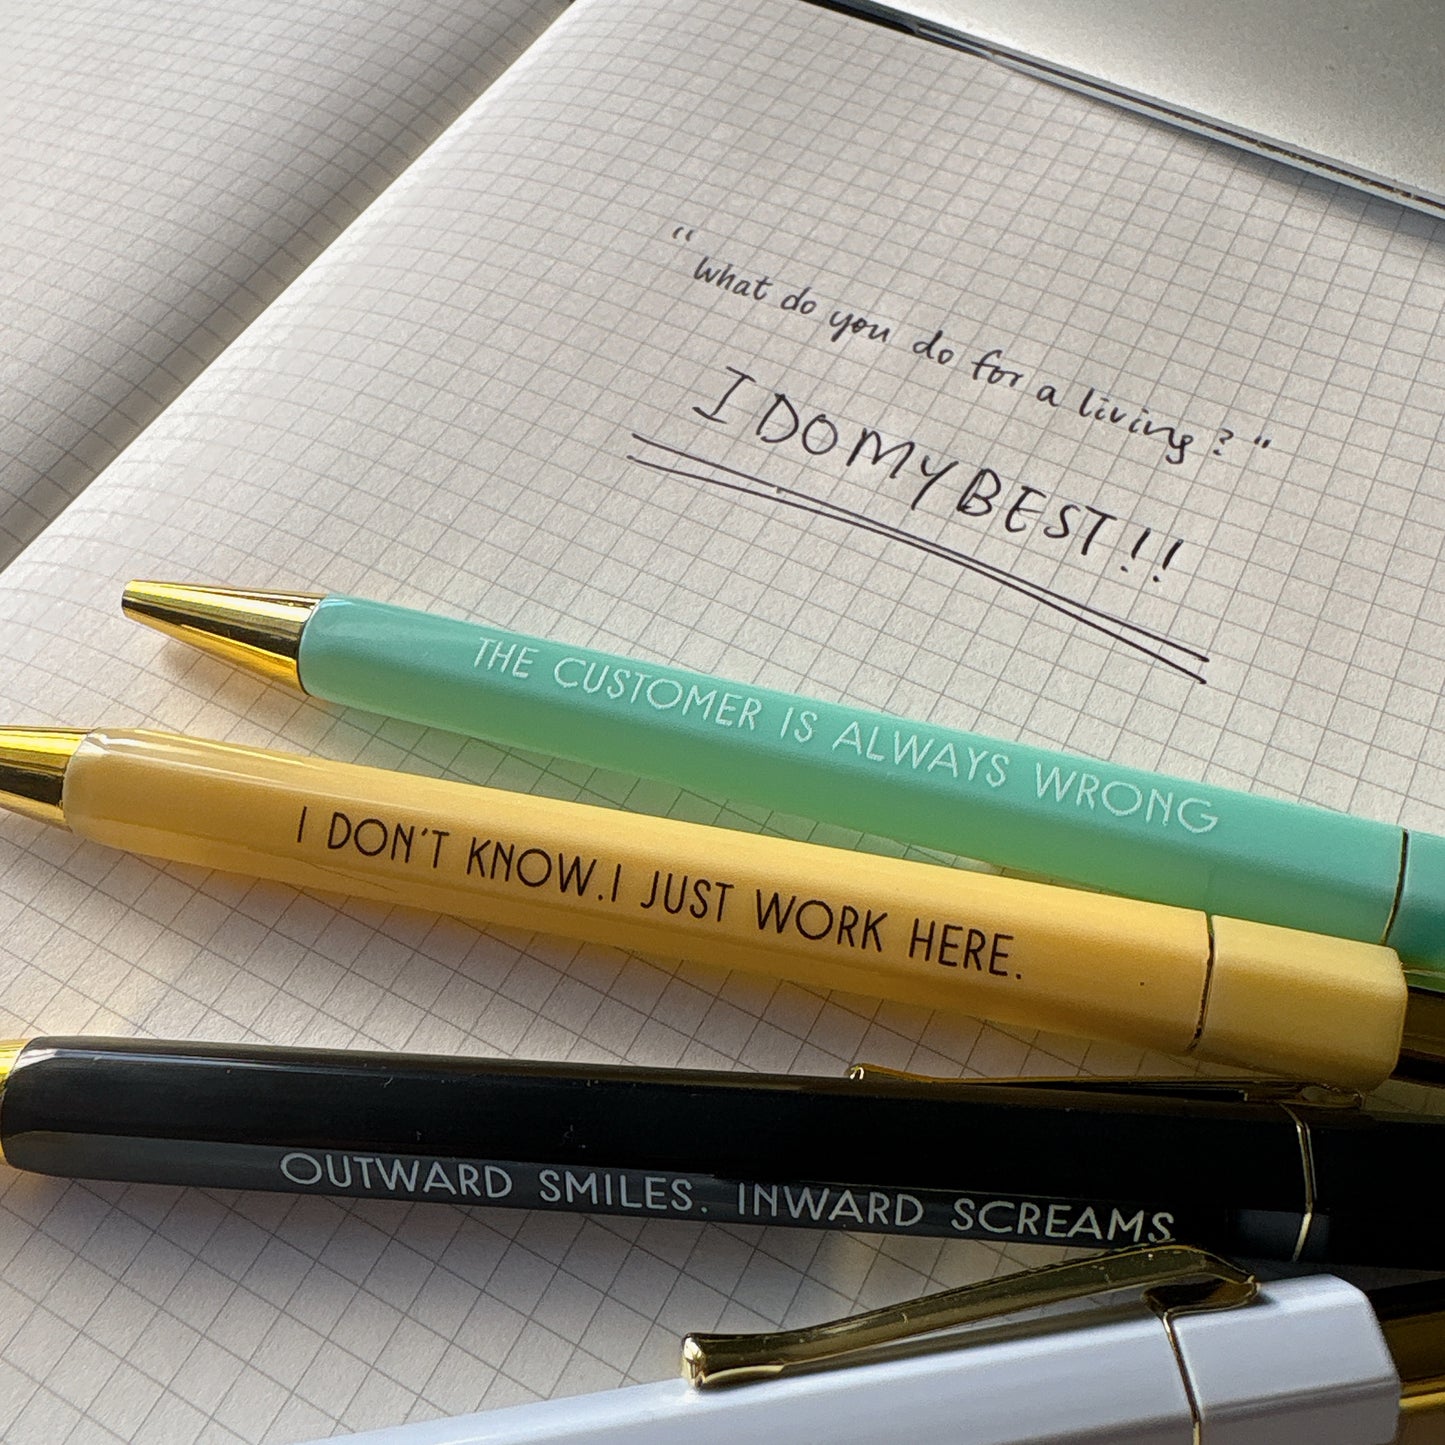 "What do you do for a living?"
I DO MY BEST!!
THE CUSTOMER IS ALWAYS WRONG
I DON'T KNOW. I JUST WORK HERE.
OUTWARD SMILES. INWARD SCREAMS